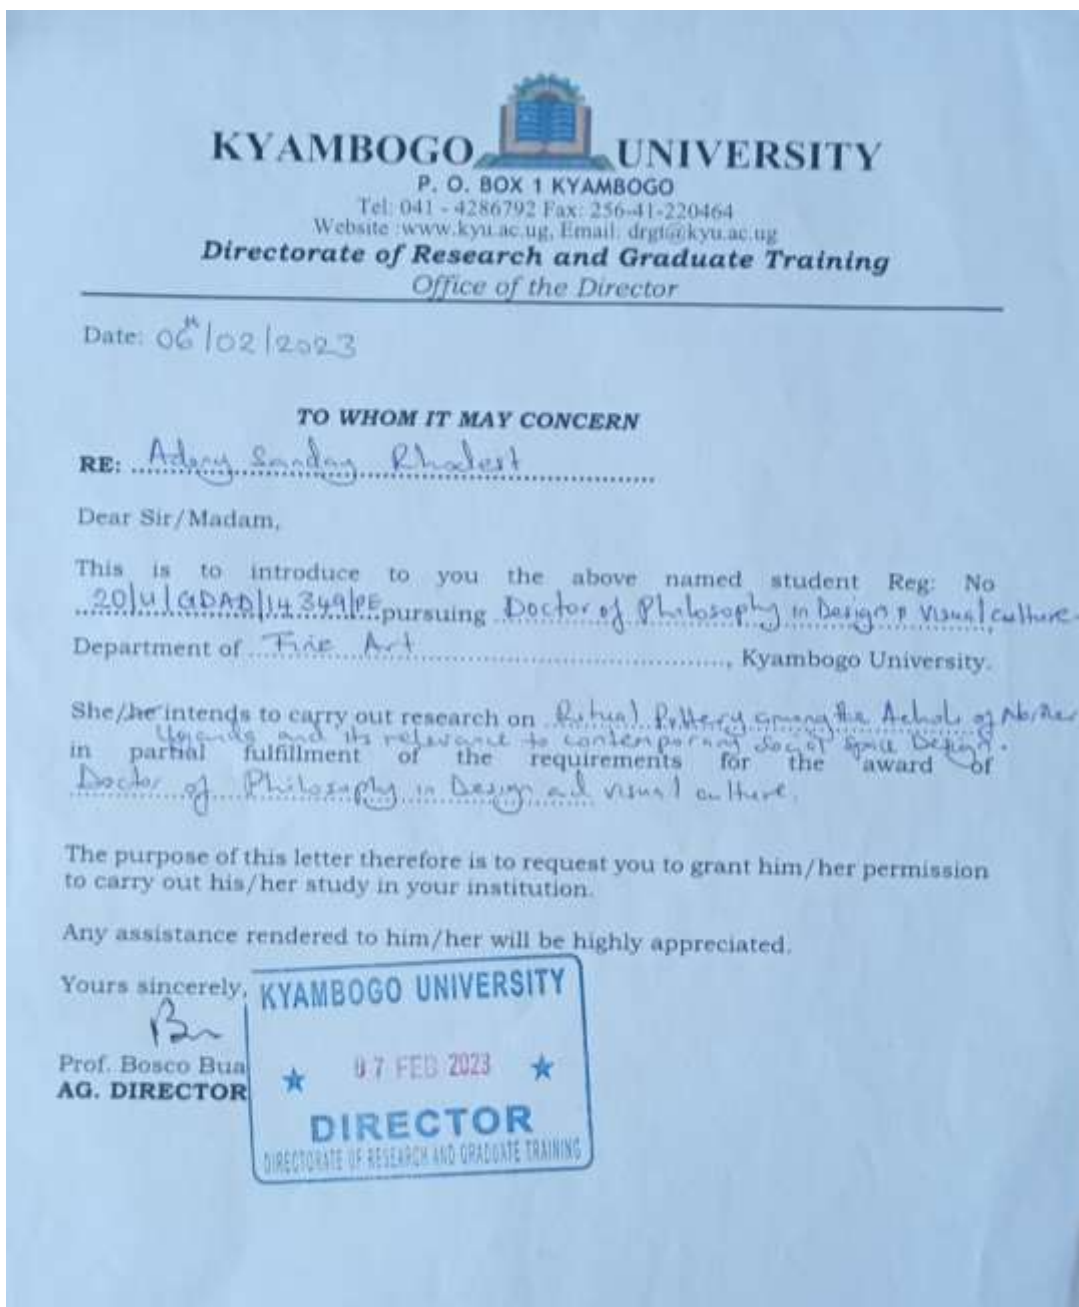 KYAMBOGO UNIVERSITY
P. O. BOX 1 KYAMBOGO
Tel: 041 - 4286792 Fax: 256-41-220464
Website :www.kyu.ac.ug, Email: drgt@kyu.ac.ug
Directorate of Research and Graduate Training
Office of the Director
Date: 06th/02/2023
TO WHOM IT MAY CONCERN
RE: Sanday
Dear Sir/Madam,
This is to introduce to you the above named student Reg: No
20/U/GDAD/14349/PE pursuing Doctor of Philosophy in Design & Visual culture.
Department of Fine Art, Kyambogo University.
She/he intends to carry out research on Ritual Pottery among the Acholi of
Uganda and its relevance to contemporary Space Design.
in partial fulfillment of the requirements for the award of
Doctor of Philosophy in Design and visual culture.
The purpose of this letter therefore is to request you to grant him/her permission
to carry out his/her study in your institution.
Any assistance rendered to him/her will be highly appreciated.
Yours sincerely,
Prof. Bosco Bua
AG. DIRECTOR
KYAMBOGO UNIVERSITY
07 FEB 2023
DIRECTOR
DIRECTORATE OF RESEARCH AND GRADUATE TRAINING